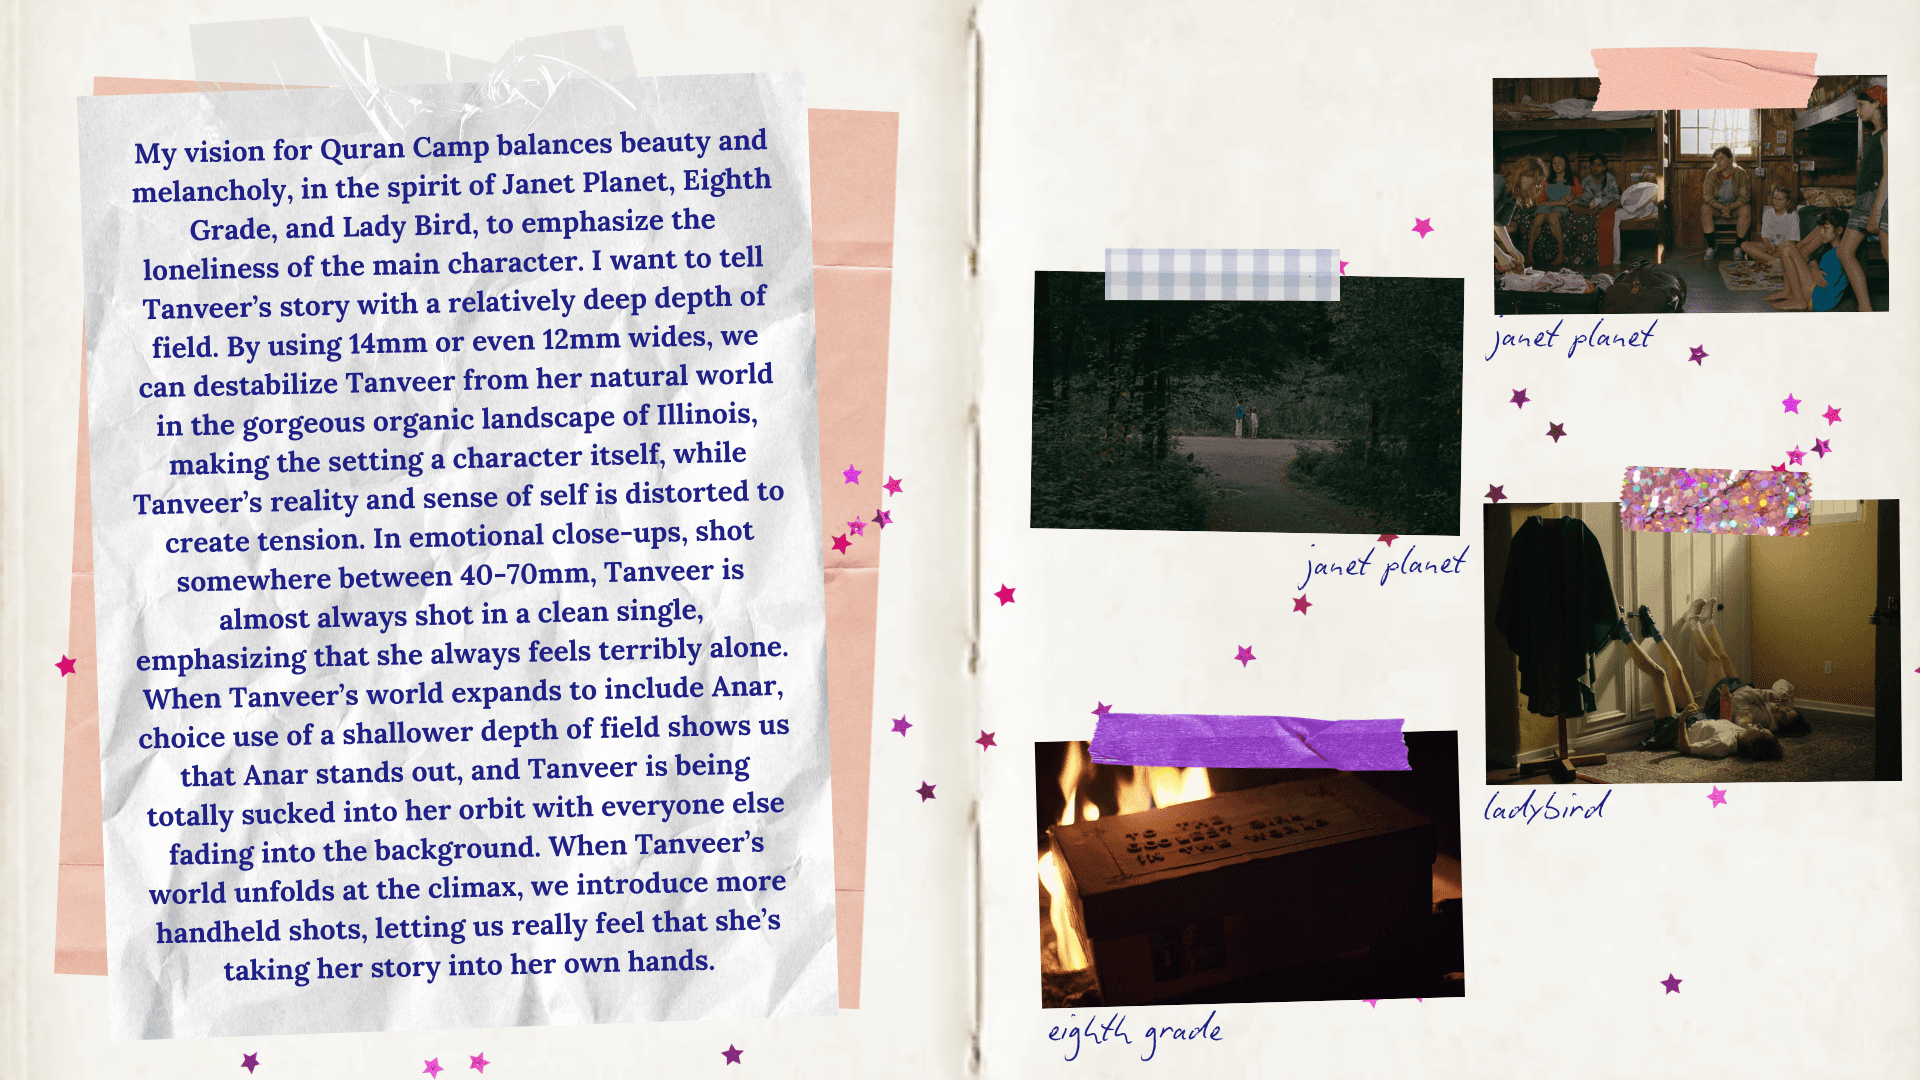 My vision for Quran Camp balances beauty and
melancholy, in the spirit of Janet Planet, Eighth
Grade, and Lady Bird, to emphasize the
loneliness of the main character. I want to tell
Tanveer’s story with a relatively deep depth of
field. By using 14mm or even 12mm wides, we
can destabilize Tanveer from her natural world
in the gorgeous organic landscape of Illinois,
making the setting a character itself, while
Tanveer’s reality and sense of self is distorted to
create tension. In emotional close-ups, shot
somewhere between 40-70mm, Tanveer is
almost always shot in a clean single,
emphasizing that she always feels terribly alone.
When Tanveer’s world expands to include Anar,
choice use of a shallower depth of field shows us
that Anar stands out, and Tanveer is being
totally sucked into her orbit with everyone else
fading into the background. When Tanveer’s
world unfolds at the climax, we introduce more
handheld shots, letting us really feel that she’s
taking her story into her own hands.
janet planet
janet planet
ladybird
TO THE
COOLEST GIRL
IN THE WORLD
eighth grade